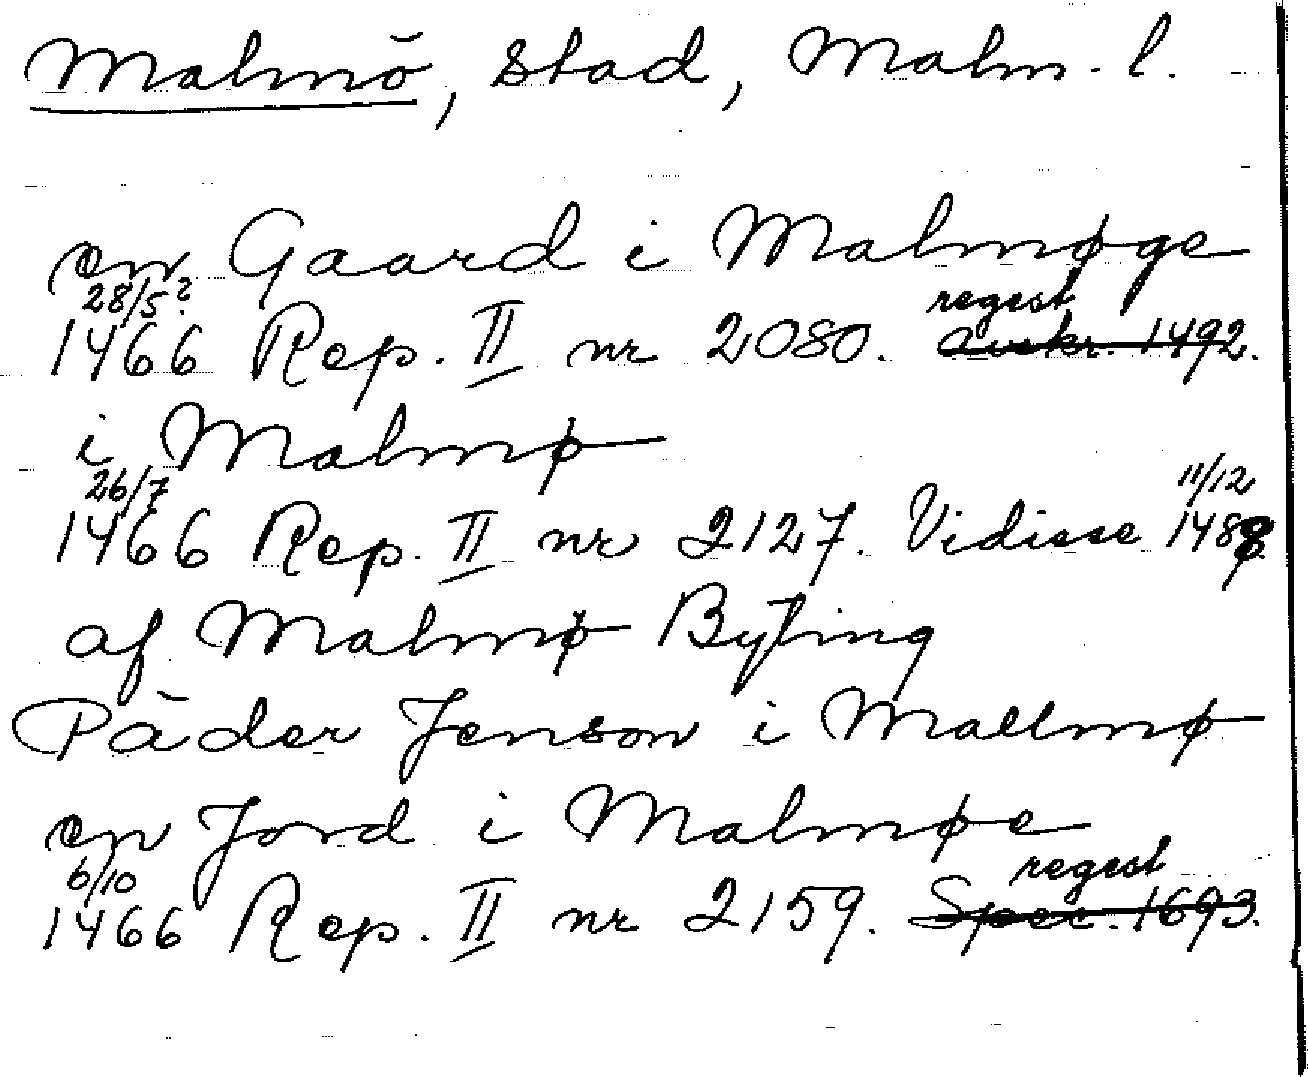 Malmö, Stad, Malm. l.
en Gaard i Malmøge
28/5? regest
1466 Rep. II nr 2080. avskr. 1492.
i Malmø
26/7 11/12
1466 Rep. II nr 2127. Vidisse
af Malmø Byting
Päder Jenson i Mallmø
en Jord i Malmøe
6/10 regest
1466 Rep. II nr 2159. Spec. 1693.